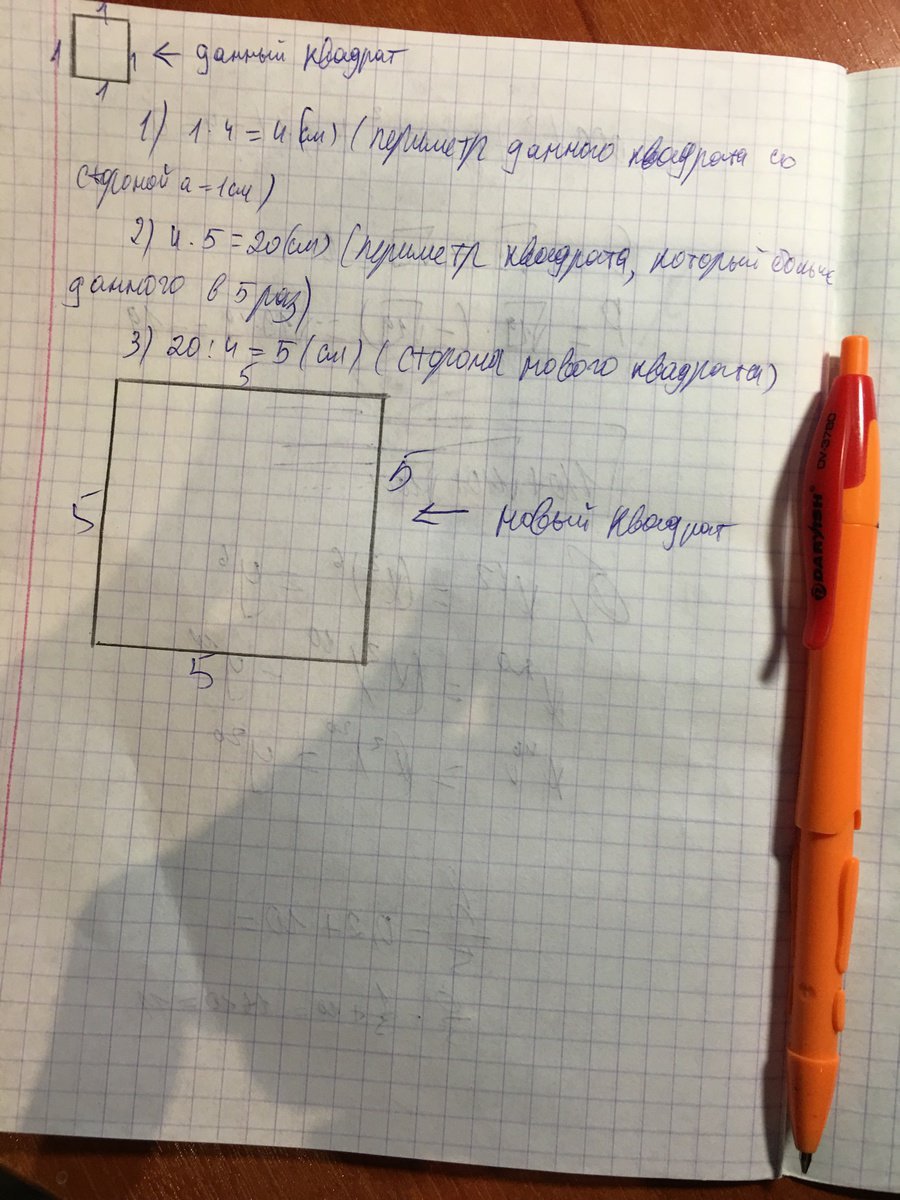 1
1 1 ← данный квадрат
1
1) 1·4=4(см) (периметр данного квадрата со
стороной a=1см)
2) 4·5=20(см) (периметр квадрата, который больше
данного в 5 раз)
3) 20:4=5(см) (сторона нового квадрата)
5
5 5 ← новый квадрат
5
DARVISH
DV-3780